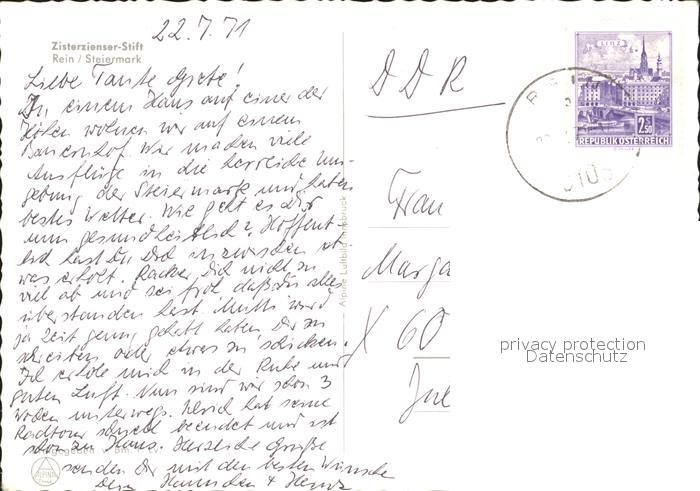 22.7.71
Zisterzienser-Stift
Rein / Steiermark
Liebe Tante Grete!
In einem Haus auf einer der
Höhen wohnen wir auf einem
Bauernhof. Wir machen viele
Ausflüge in die herrliche Um-
gebung der Steiermark und haben
bestes Wetter. Wie geht es Dir
nun gesundheitlich? Hoffent-
lich hast Du Dich inzwischen et-
was erholt. Racker Dich nicht so
viel ab und sei froh, daß Du alles
überstanden hast. Mutti wird
ja Zeit genug gehabt haben Dir zu
schreiben oder etwas zu schicken.
Ich erhole mich in der Ruhe und
guten Luft. Nun sind wir schon 3
Wochen unterwegs. hat seine
Radtour beendet und ist
schon zu Haus. Herzliche Grüße
senden Dir mit den besten Wünschen
Dein Hannchen + Heinz
DDR
Frau
Marga
X 60
Alpine Luftbild Innsbruck
LINZ
2.50
REPUBLIK ÖSTERREICH
privacy protection
Datenschutz
ALPINE